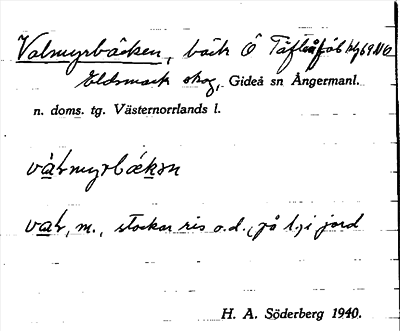 Valmyrbäcken, bäck Ö
Eldsmark skog, Gideå sn Ångermanl.
n. doms. tg. Västernorrlands l.
vàlmyrbäkən
val, m., stockar ris o.d., på l. i jord
H. A. Söderberg 1940.